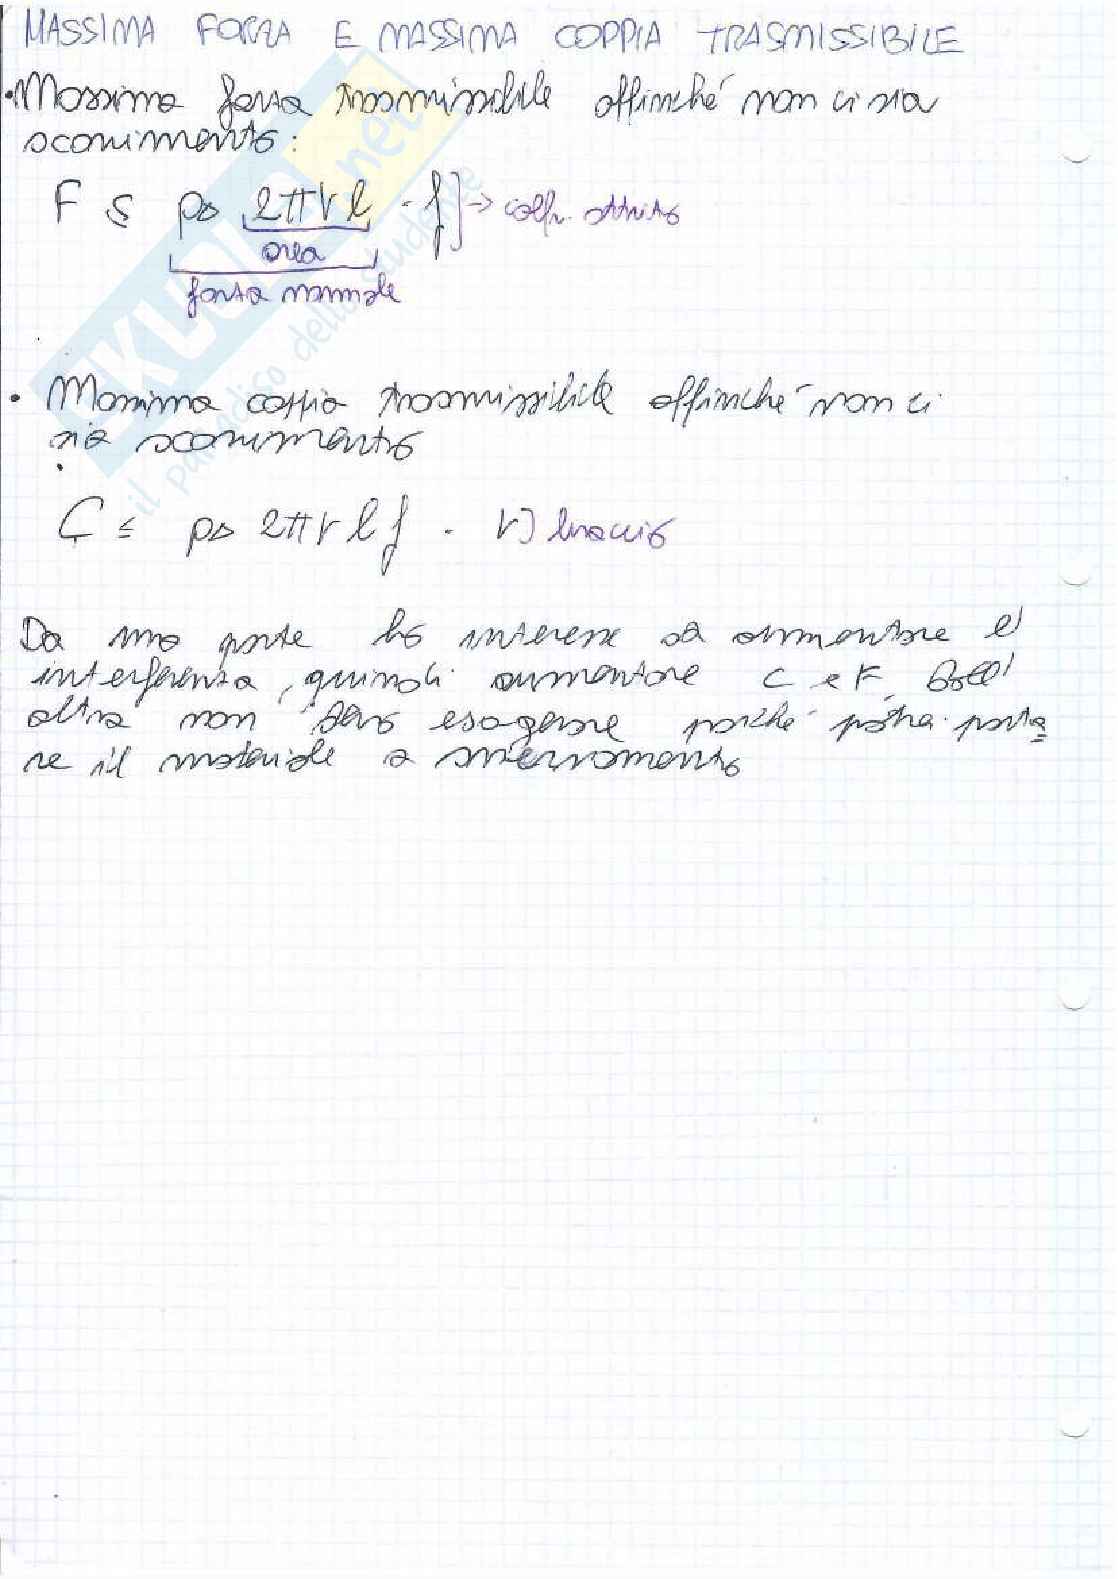 MASSIMA FORZA E MASSIMA COPPIA TRASMISSIBILE
• Massima forza trasmissibile affinché non ci sia
scorrimento:
F ≤ ps 2πrl · f ] → coeff. attrito
area
forza normale
• Massima coppia trasmissibile affinché non ci
sia scorrimento
C ≤ ps 2πrlf · r] braccio
Da una parte ho interesse ad aumentare l'
interferenza, quindi aumentare C e F. Dall'
altra non devo esagerare poiché potrei porta=
re il materiale a snervamento
SKUOLA.net
il paradiso dello studente